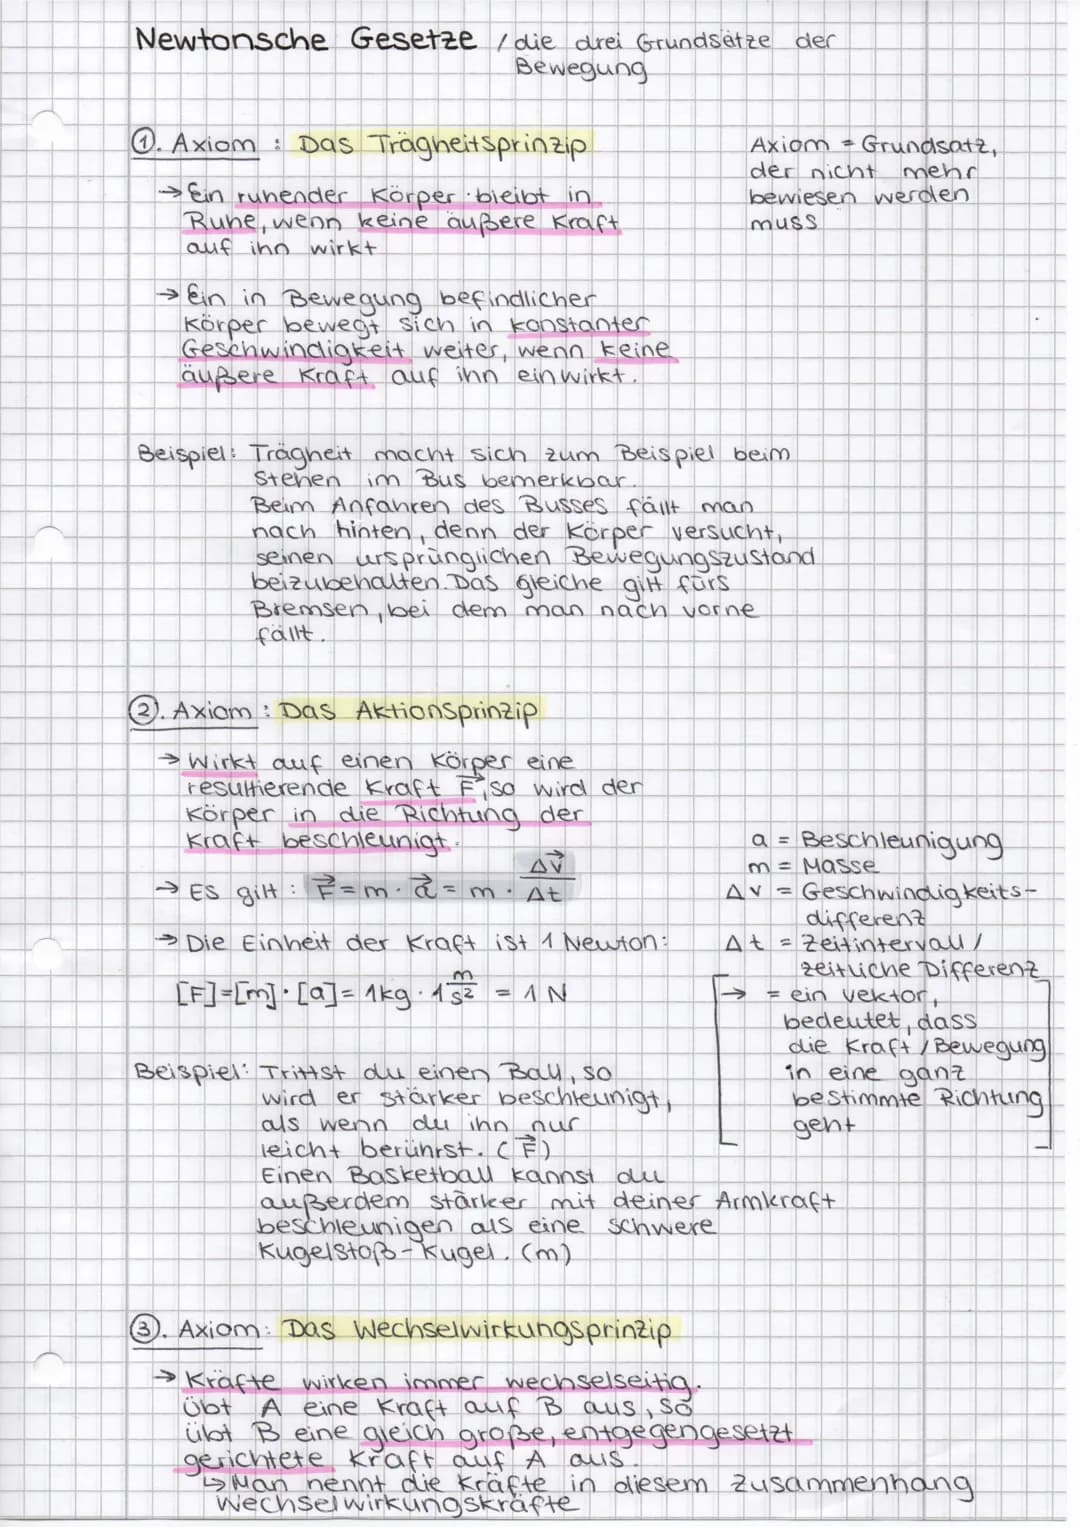 Newtonsche Gesetze / die drei Grundsätze der
Bewegung
①. Axiom : Das Trägheitsprinzip
→ Ein ruhender Körper bleibt in
Ruhe, wenn keine äußere Kraft
auf ihn wirkt
→ Ein in Bewegung befindlicher
Körper bewegt sich in konstanter
Geschwindigkeit weiter, wenn keine
äußere Kraft auf ihn einwirkt.
Axiom = Grundsatz,
der nicht mehr
bewiesen werden
muss
Beispiel: Trägheit macht sich zum Beispiel beim
Stehen im Bus bemerkbar.
Beim Anfahren des Busses fällt man
nach hinten, denn der Körper versucht,
seinen ursprünglichen Bewegungszustand
beizubehalten. Das gleiche gilt fürs
Bremsen, bei dem man nach vorne
fällt.
②. Axiom : Das Aktionsprinzip
→ Wirkt auf einen Körper eine
resultierende Kraft F⃗, so wird der
Körper in die Richtung der
Kraft beschleunigt.
→ Es gilt : F⃗ = m · a⃗ = m · Δv⃗/Δt
→ Die Einheit der Kraft ist 1 Newton:
[F]=[m]·[a]= 1kg · 1 m/s² = 1 N
a = Beschleunigung
m = Masse
Δv = Geschwindigkeits-
differenz
Δt = Zeitintervall /
zeitliche Differenz
→ = ein Vektor,
bedeutet, dass
die Kraft / Bewegung
in eine ganz
bestimmte Richtung
geht
Beispiel: Trittst du einen Ball, so
wird er stärker beschleunigt,
als wenn du ihn nur
leicht berührst. (F⃗)
Einen Basketball kannst du
außerdem stärker mit deiner Armkraft
beschleunigen als eine schwere
Kugelstoß-Kugel. (m)
③. Axiom: Das Wechselwirkungsprinzip
→ Kräfte wirken immer wechselseitig.
Übt A eine Kraft auf B aus, so
übt B eine gleich große, entgegengesetzt
gerichtete Kraft auf A aus.
↳ Man nennt die Kräfte in diesem Zusammenhang
Wechselwirkungskräfte